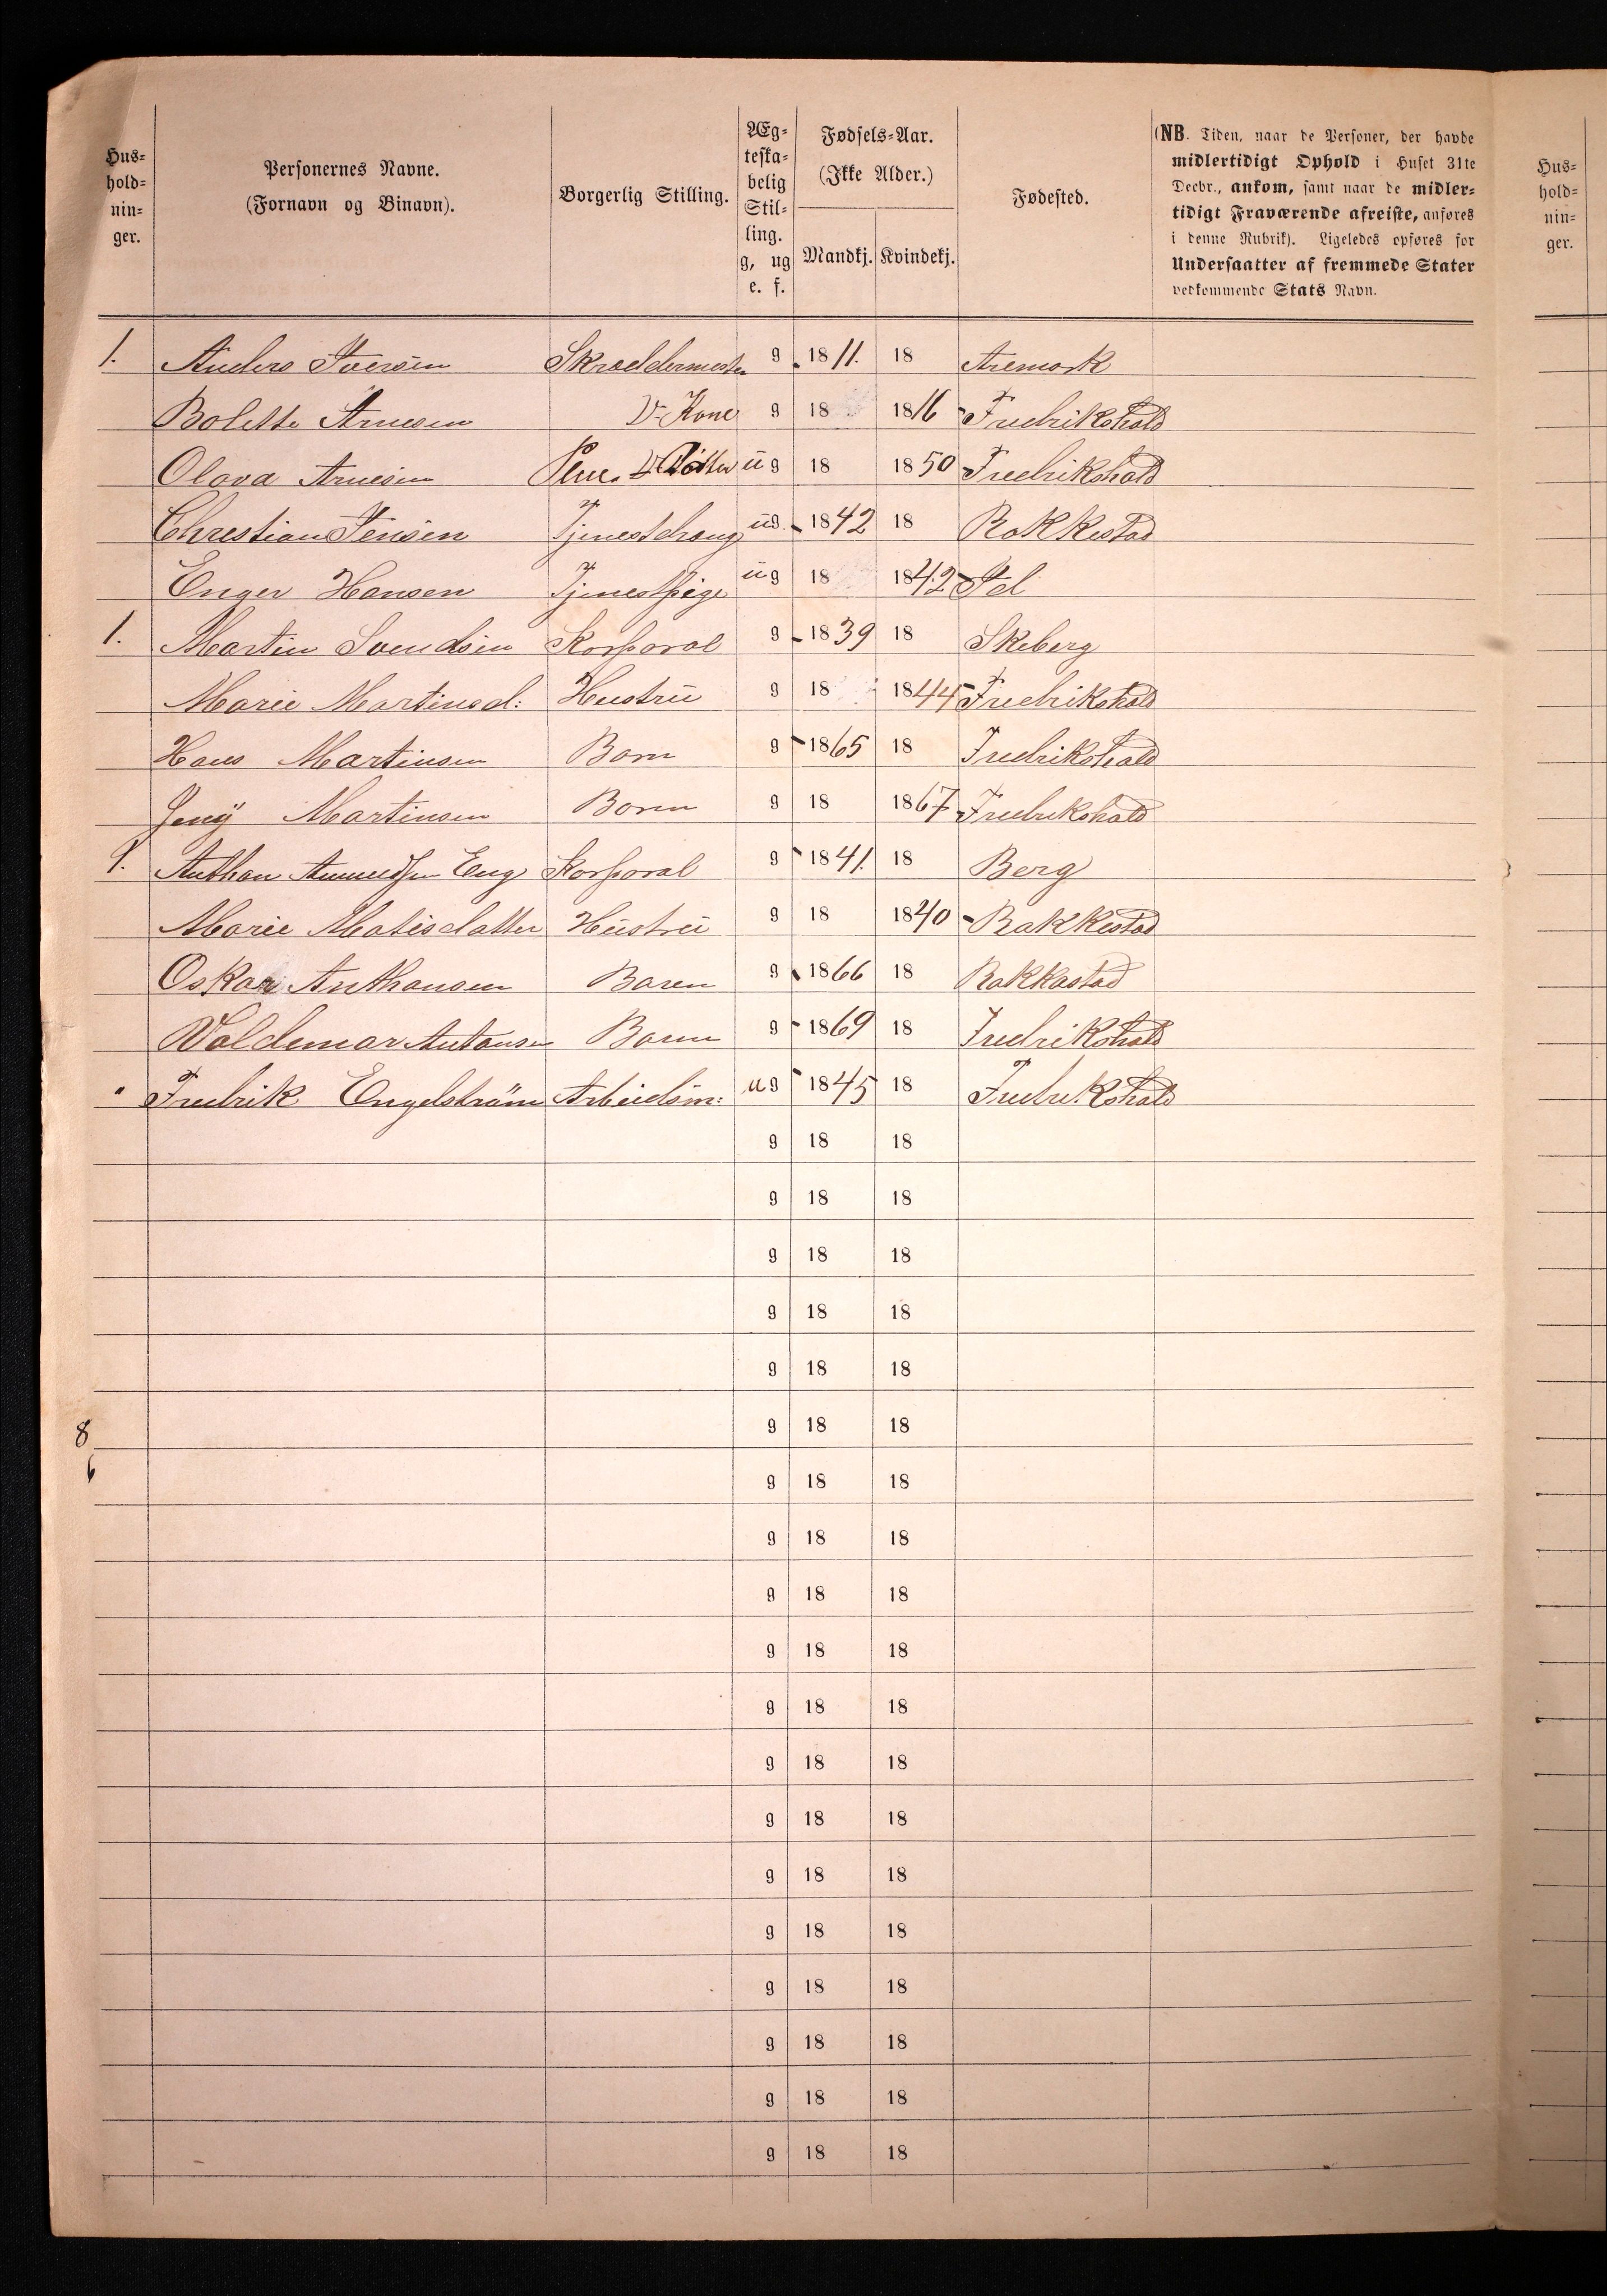 Hus-
hold-
nin-
ger.
Personernes Navne.
(Fornavn og Binavn).
Borgerlig Stilling.
Æg-
teska-
belig
Stil-
ling.
g, ug
e. f.
Fødsels-Aar.
(Ikke Alder.)
Mandkj. Kvindekj.
Fødested.
(NB. Tiden, naar de Personer, der havde
midlertidigt Ophold i Huset 31te
Decbr., ankom, samt naar de midler-
tidigt Fraværende afreiste, anføres
i denne Rubrik). Ligeledes opføres for
Undersaatter af fremmede Stater
vedkommende Stats Navn.
Hus-
hold-
nin-
ger.
1. Anders Iversen Skræddermester g 1811. 18 Aremark
Bolette Arnesen D- Kone g 18 1816 Fredrikshald
Olava Arnesen D Datter ug 18 1850 Fredrikshald
Christian Jensen ug 1842 18 Rakkestad
Enger Hansen Tjenestpige ug 18 1842 Id
1. Martin Svendsen Korporal g 1839 18 Skeberg
Marie Martinsd: Hustru g 18 1844 Fredrikshald
Hans Martinsen Barn g 1865 18 Fredrikshald
Jeny Martinsen Baren g 18 1867 Fredrikshald
1. Anthon Amundsen Eng Korporal g 1841. 18 Berg
Marie Matisdatter Hustru g 18 1840 Rakkestad
Oskar Anthonsen Baren g 1866 18 Rakkastad
Valdemar Antonsen Baren g 1869 18 Fredrikshald
" Fredrik Engelström Arbeidsm: ug 1845 18 Fredrikshald
g 18 18
g 18 18
g 18 18
g 18 18
g 18 18
8 g 18 18
6 g 18 18
g 18 18
g 18 18
g 18 18
g 18 18
g 18 18
g 18 18
g 18 18
g 18 18
g 18 18
g 18 18
g 18 18
g 18 18